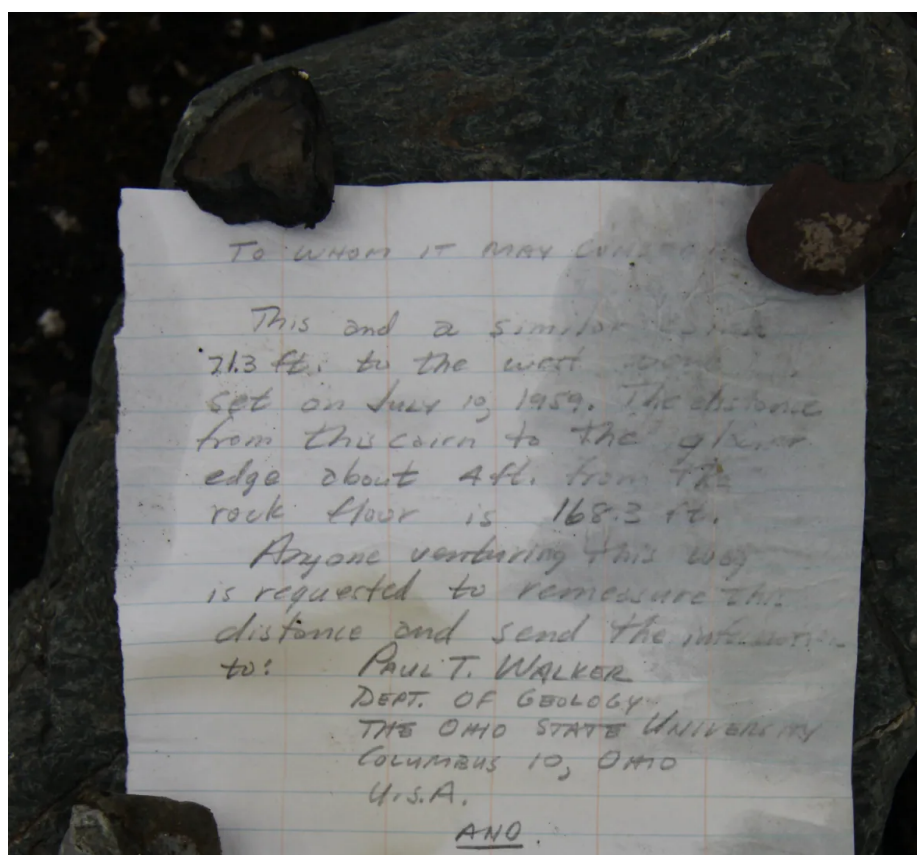 TO WHOM IT MAY CONCERN
This and a similar cairn
71.3 ft. to the west were
set on July 10, 1959. The distance
from this cairn to the glacier
edge about 4 ft. from the
rock floor is 168.3 ft.
Anyone venturing this way
is requested to remeasure this
distance and send the information
to: PAUL T. WALKER
DEPT. OF GEOLOGY
THE OHIO STATE UNIVERSITY
COLUMBUS 10, OHIO
U.S.A.
AND